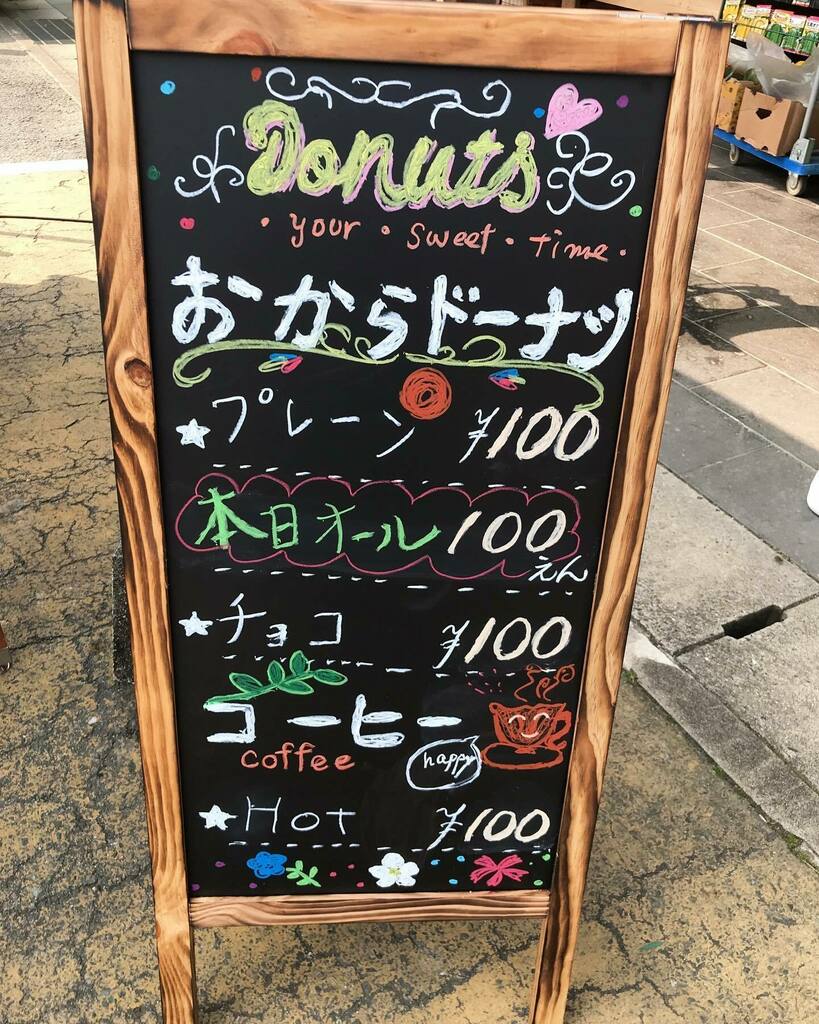 Donuts
• your • sweet • time •
おからドーナツ
★プレーン ¥100
本日オール100えん
★チョコ ¥100
コーヒー
coffee
happy
★Hot ¥100